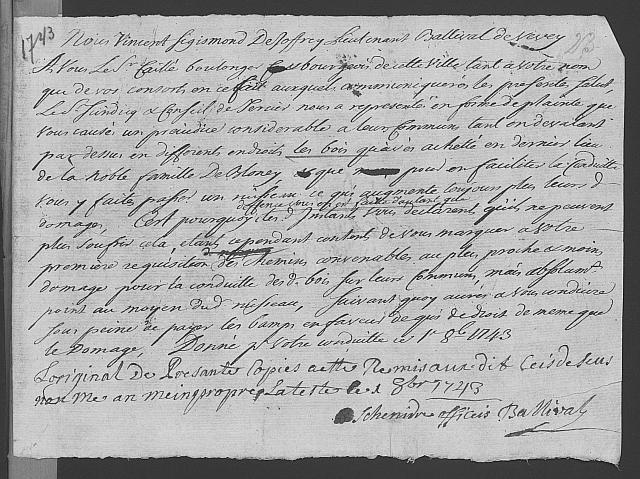 1743
Nous Vincent Sigismond DeJoffrey Lieutenant Ballival de Vevey
A Vous Le Sr. Caillé boulenger bourgeois de cette Ville tant a votre nom
que de vos consorts en ce fait auxquels communiquerés les presentes, Salut
Le Sr. Sindicq & Conseil de nous a representé en forme de plainte que
vous cause un prejudice considerable a leur Commun, tant en devalant
par dessus en differents endroits les bois quavés achetté en dernier lieu
de la Noble famille De Bloney que pour en faciliter la Conduitte
vous y faites passer un ce qui augmente toujours plus leurs d
domages, Cest pourquoy les d. Instants vous declarent qu'ils ne peuvent
plus soufrir cela, etants cependant contents de vous marquer a votre
premiere requisition des chemins convenables au plus proche & moins
domage pour la conduitte des d. bois sur leurs Communs, mais absolumt.
point au moyen du d. Suivant quoy aurés a vous conduire
sous peine de payer les bamps en faveur de qui de droit de meme que
le Domage, Donné pr. Votre conduitte ce 1r 8bre 1743
Loriginal De Presante Copies a ette Remis aux dit
mon Me an meing propre Lateste le 1 8bre 1743
officis Ballival